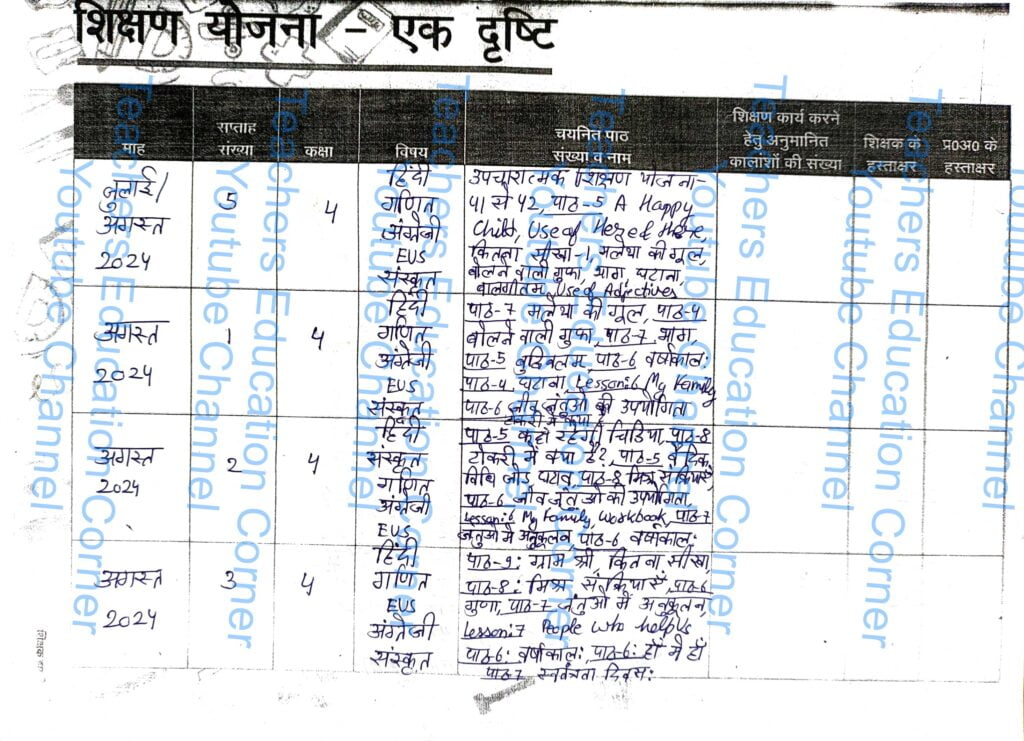 शिक्षण योजना - एक दृष्टि
माह
सप्ताह संख्या
कक्षा
विषय
चयनित पाठ संख्या व नाम
शिक्षण कार्य करने हेतु अनुमानित कालांशों की संख्या
शिक्षक के हस्ताक्षर
प्र0अ0 के हस्ताक्षर
जुलाई/
अगस्त
2024
5
4
हिंदी
गणित
अंग्रेजी
EVS
संस्कृत
उपचारात्मक शिक्षण योजना-
41 से 42, पाठ-5 A Happy
Child, Use of Here & There,
कितना सीखा-1, मलेथा की गूल,
बोलने वाली गुफा, भाग, घटाना,
बालगीतम, Use of Adjectives
अगस्त
2024
1
4
हिंदी
गणित
अंग्रेजी
EVS
संस्कृत
पाठ-7 मलेथा की गूल, पाठ-4
बोलने वाली गुफा, पाठ-7 भाग,
पाठ-5 बुद्धिबलम, पाठ-6 वर्षाकाल:
पाठ-4, घटाना, Lesson:6, My Family
पाठ-6 जीव जंतुओं की उपयोगिता
अगस्त
2024
2
4
हिंदी
संस्कृत
गणित
अंग्रेजी
EVS
टोकरी में क्या
पाठ-5 कहाँ रहेगी चिड़िया, पाठ-8
टोकरी में क्या है?, पाठ-5 वैदिक
विधि जोड़ घटाव, पाठ-8 मिश्र संक्रियाएँ,
पाठ-6 जीव जंतुओं की उपयोगिता,
Lesson:6 My Family, Workbook, पाठ-7
जंतुओं में अनुकूलन, पाठ-6 वर्षाकाल:
अगस्त
2024
3
4
हिंदी
गणित
EVS
अंग्रेजी
संस्कृत
पाठ-9: ग्राम श्री, कितना सीखा,
पाठ-8: मिश्र संक्रियाएँ, पाठ-6
गुणा, पाठ-7 जंतुओं में अनुकूलन,
Lesson:7 People who help us
पाठ-6: वर्षाकाल:, पाठ-6: हाँ में हाँ
पाठ-7 स्वतंत्रता दिवस:
Teachers Education Corner
Youtube Channel
Teachers Education Corner
Youtube Channel
Teachers Education Corner
Youtube Channel
Teachers Education Corner
Youtube Channel
Teachers Education Corner
Youtube Channel
Teachers Education Corner
Youtube Channel